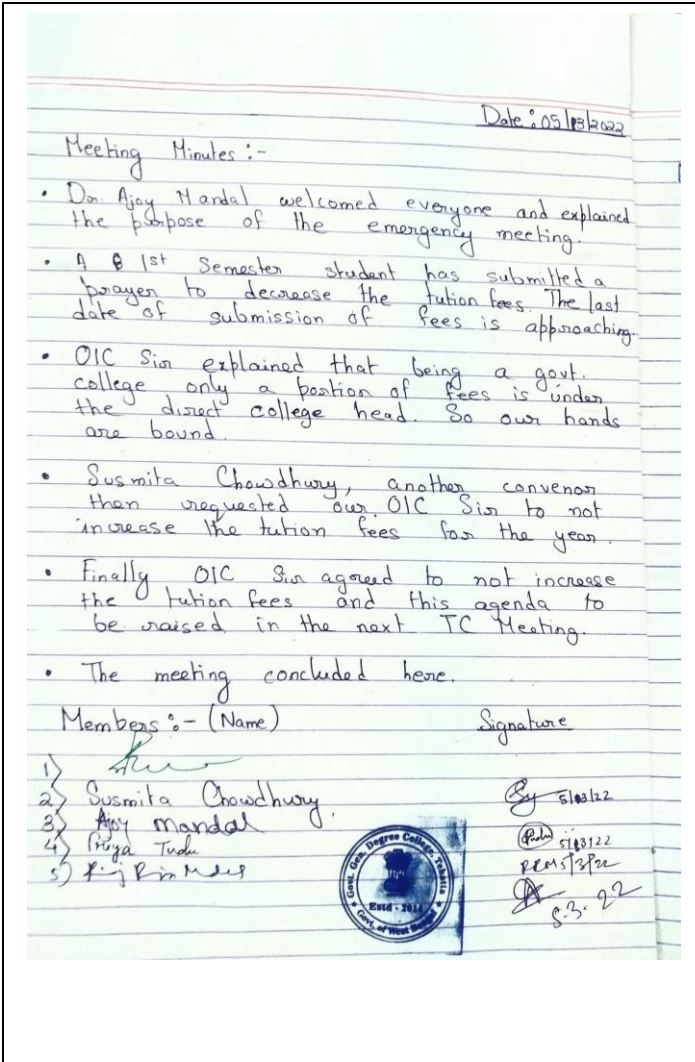 Date : 05/03/2022
Meeting Minutes :-
• Dr. Ajoy Mandal welcomed everyone and explained
the purpose of the emergency meeting.
• A 1st Semester student has submitted a
prayer to decrease the tution fees. The last
date of submission of fees is approaching.
• OIC Sir explained that being a govt.
college only a portion of fees is under
the direct college head. So our hands
are bound.
• Susmita Chowdhury, another convenor
then requested our OIC Sir to not
increase the tution fees for the year.
• Finally OIC Sir agreed to not increase
the tution fees and this agenda to
be raised in the next TC Meeting.
• The meeting concluded here.
Members :- (Name) Signature
1)
2) Susmita Chowdhury. 5/03/22
3) Ajoy Mandal
4) Priya Tudu 5/03/22
5) 5/3/22
5.3.22
Govt. Gen. Degree College, Tehatta
Estd - 2014
Govt. of West Bengal